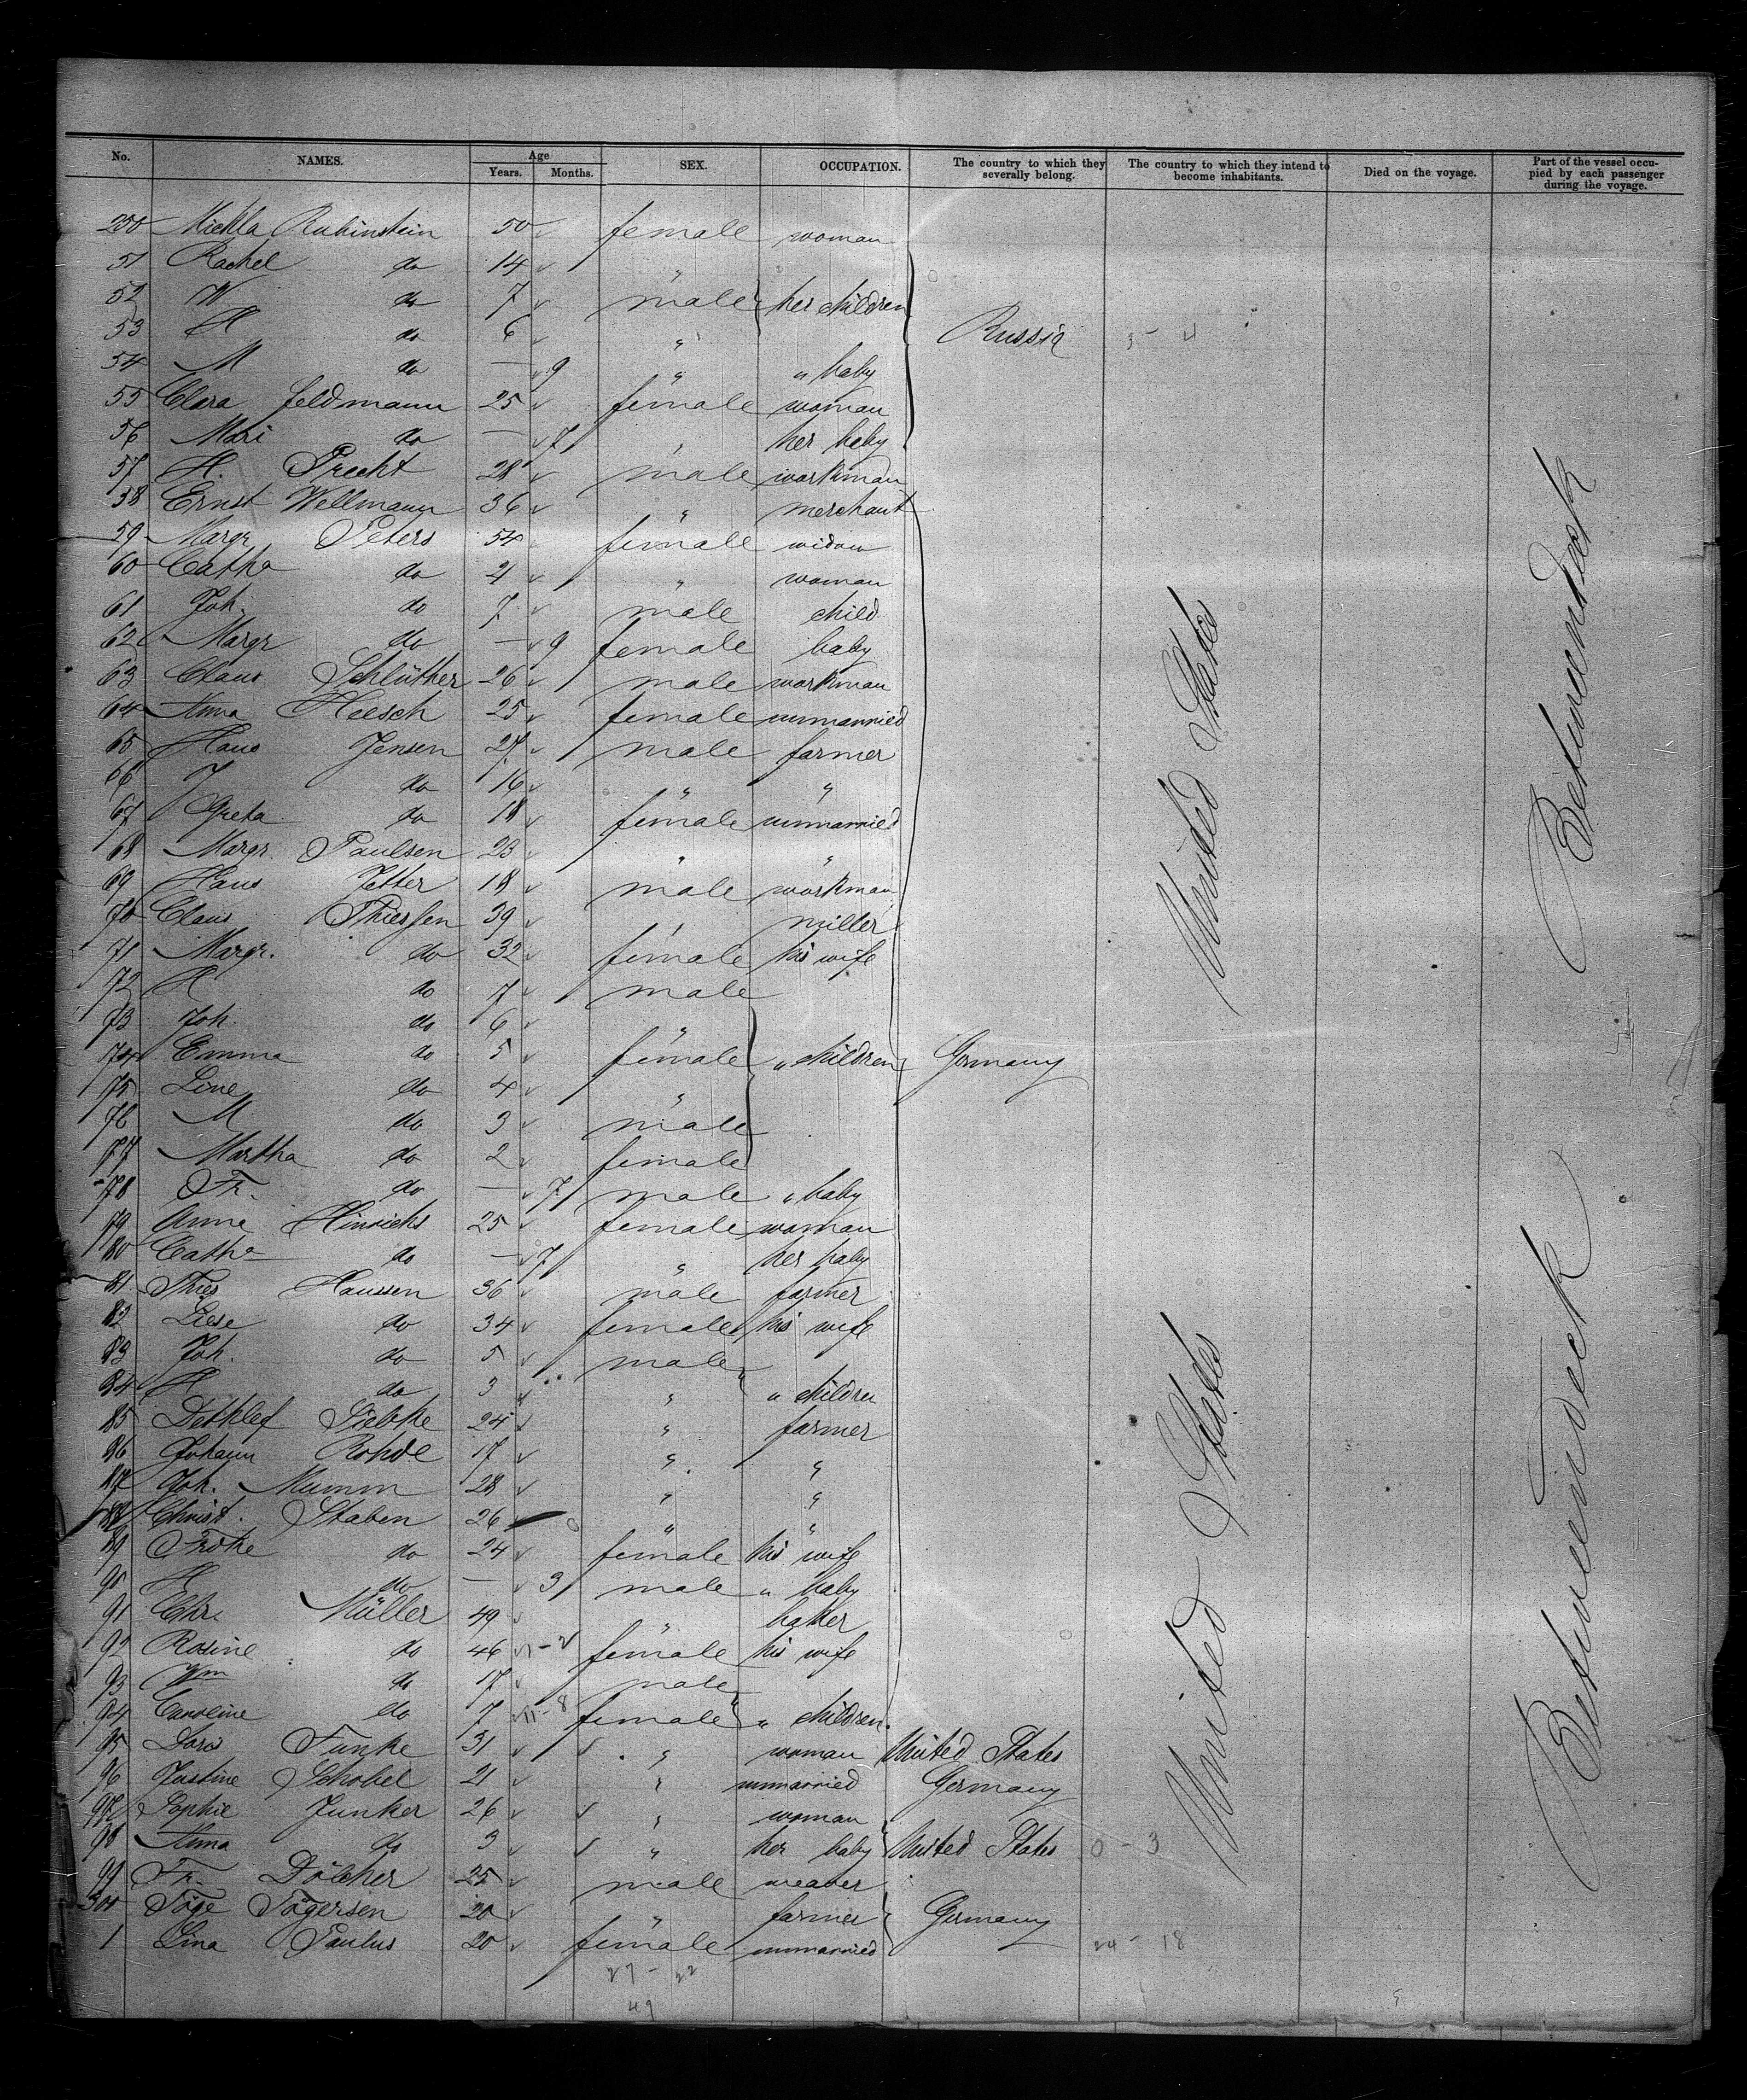 No. NAMES. Age Years. Months. SEX. OCCUPATION. The country to which they severally belong. The country to which they intend to become inhabitants. Died on the voyage. Part of the vessel occupied by each passenger during the voyage.
250 Michla Rubinstein 50 female woman
51 Rachel do 14 "
52 W do 7 male her children
53 H do 6 " Russia
54 M do — 9 " " baby
55 Clara Feldmann 25 female woman
56 Mari do — 7 " her baby
57 H. Precht 28 male workman
58 Ernst Wellmann 36 " merchant
59 Margr Peters 54 female widow
60 Catha do 21 " woman
61 Joh. do 7 male child
62 Margr do — 9 female baby
63 Claus Schlüther 26 male workman
64 Anna Heesch 25 female unmarried
65 Hans Jensen 27 male farmer
66 J do 16 " "
67 Greta do 18 female unmarried
68 Margr. Paulsen 23 " "
69 Hans Jetter 18 male workman
70 Claus Thiessen 39 " miller
71 Margr. do 32 female his wife
72 H do 7 male
73 Joh. do 6 "
74 Emma do 5 female " children Germany
75 Line do 4 "
76 M do 3 male
77 Martha do 2 female
78 Fr. do — 7 male " baby
79 Anna Hinrichs 25 female woman
80 Catha do — 7 " her baby
81 Thies Hanssen 36 male farmer
82 Liese do 34 female his wife
83 Joh. do 5 male
84 H do 3 " " children
85 Dethlef Siebke 24 " farmer
86 Johann Rohde 17 " "
87 Joh. Mumm 28 " "
88 Christ. Staben 26 " "
89 Frdke do 24 female his wife
90 H do — 3 male " baby
91 Chr. Müller 49 " baker
92 Rosine do 46 female his wife
93 Wm do 17 male
94 Caroline do 7 female " children
95 Doris Funke 31 " woman United States
96 Justine Schobel 21 " unmarried Germany
97 Sophie Junker 26 " woman
98 Anna do 3 " her baby United States 0 - 3
99 Fr. Dölcher 25 male weaver
300 Töge Tögersen 20 " farmer Germany
1 Lina Paulus 20 female unmarried 24 - 18
27 - 22
49
United States
United States
Betweendeck
Betweendeck